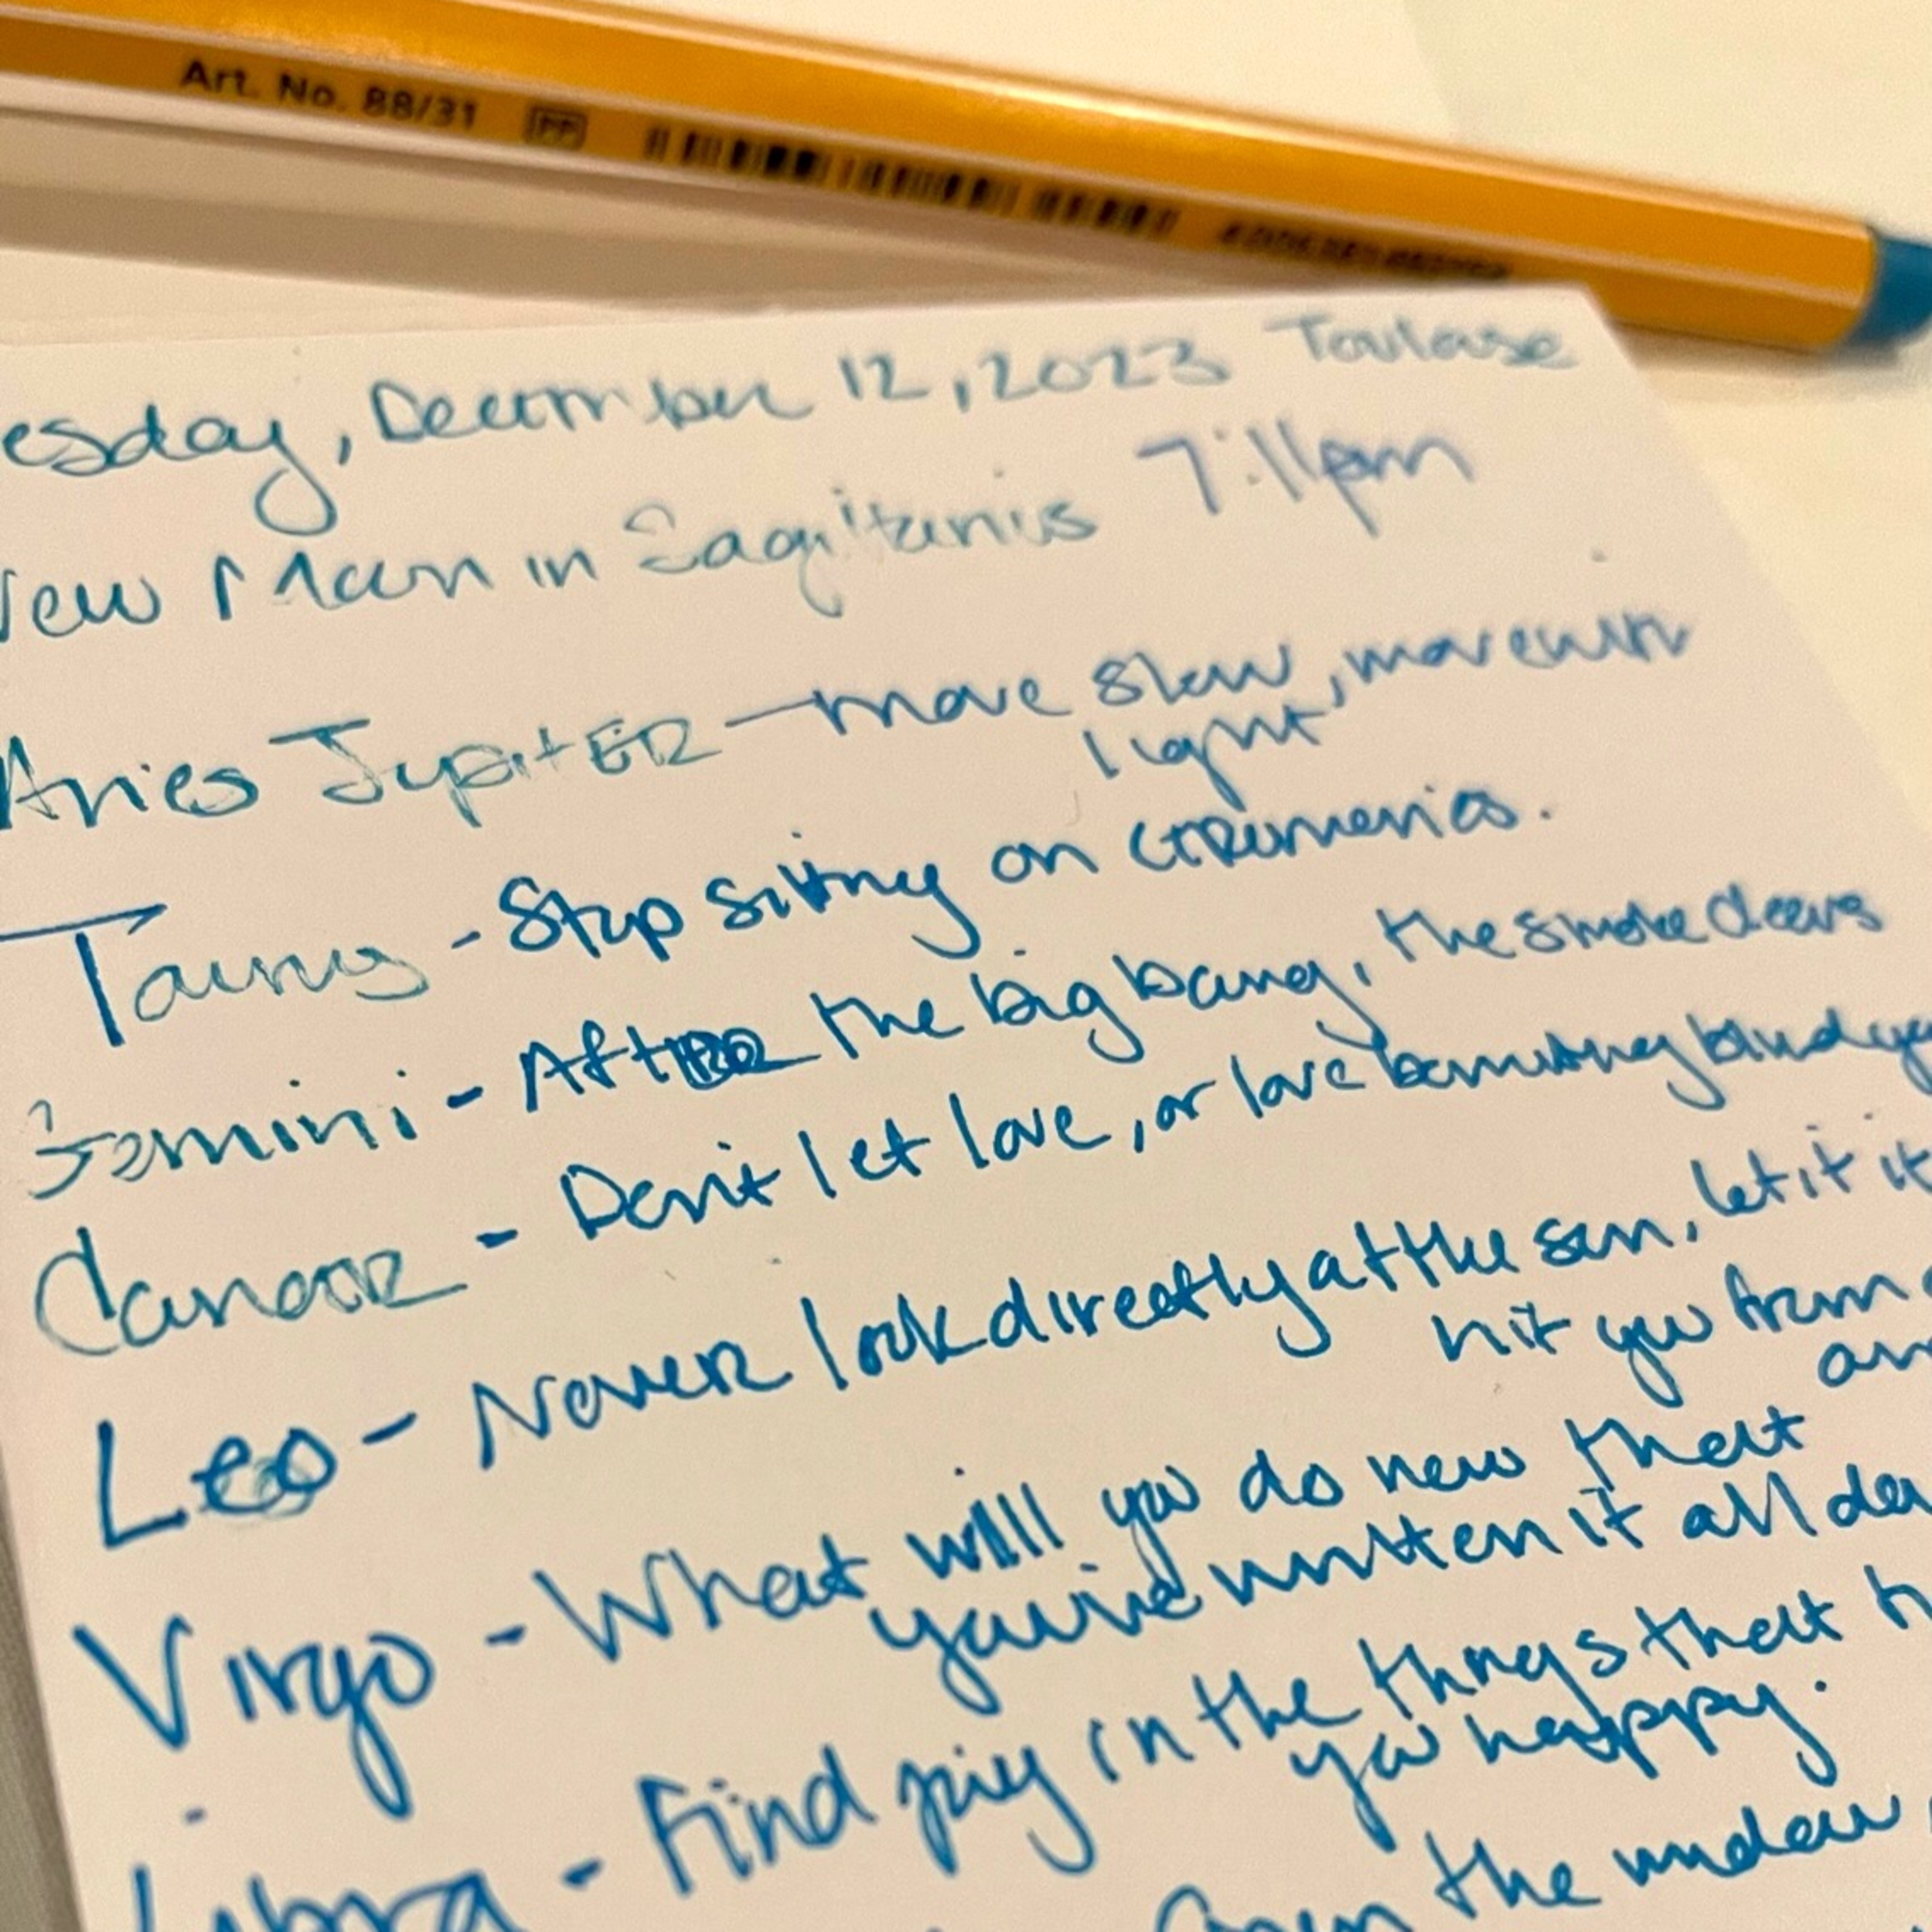 Art. No. 88/31 PP
esday, December 12, 2023 Toulouse
New Moon in Sagittarius 7:11pm
Aries Jupiter — move slow, move with
light
Taurus - Stop sitting on
Gemini - After the big bang, the smoke clears
Cancer - Don't let love, or love bombing blind
Leo - Never look directly at the sun, let it
hit you from
Virgo - What will you do now that
you've written it all
Libra - Find joy in the things that
you happy.
from the window